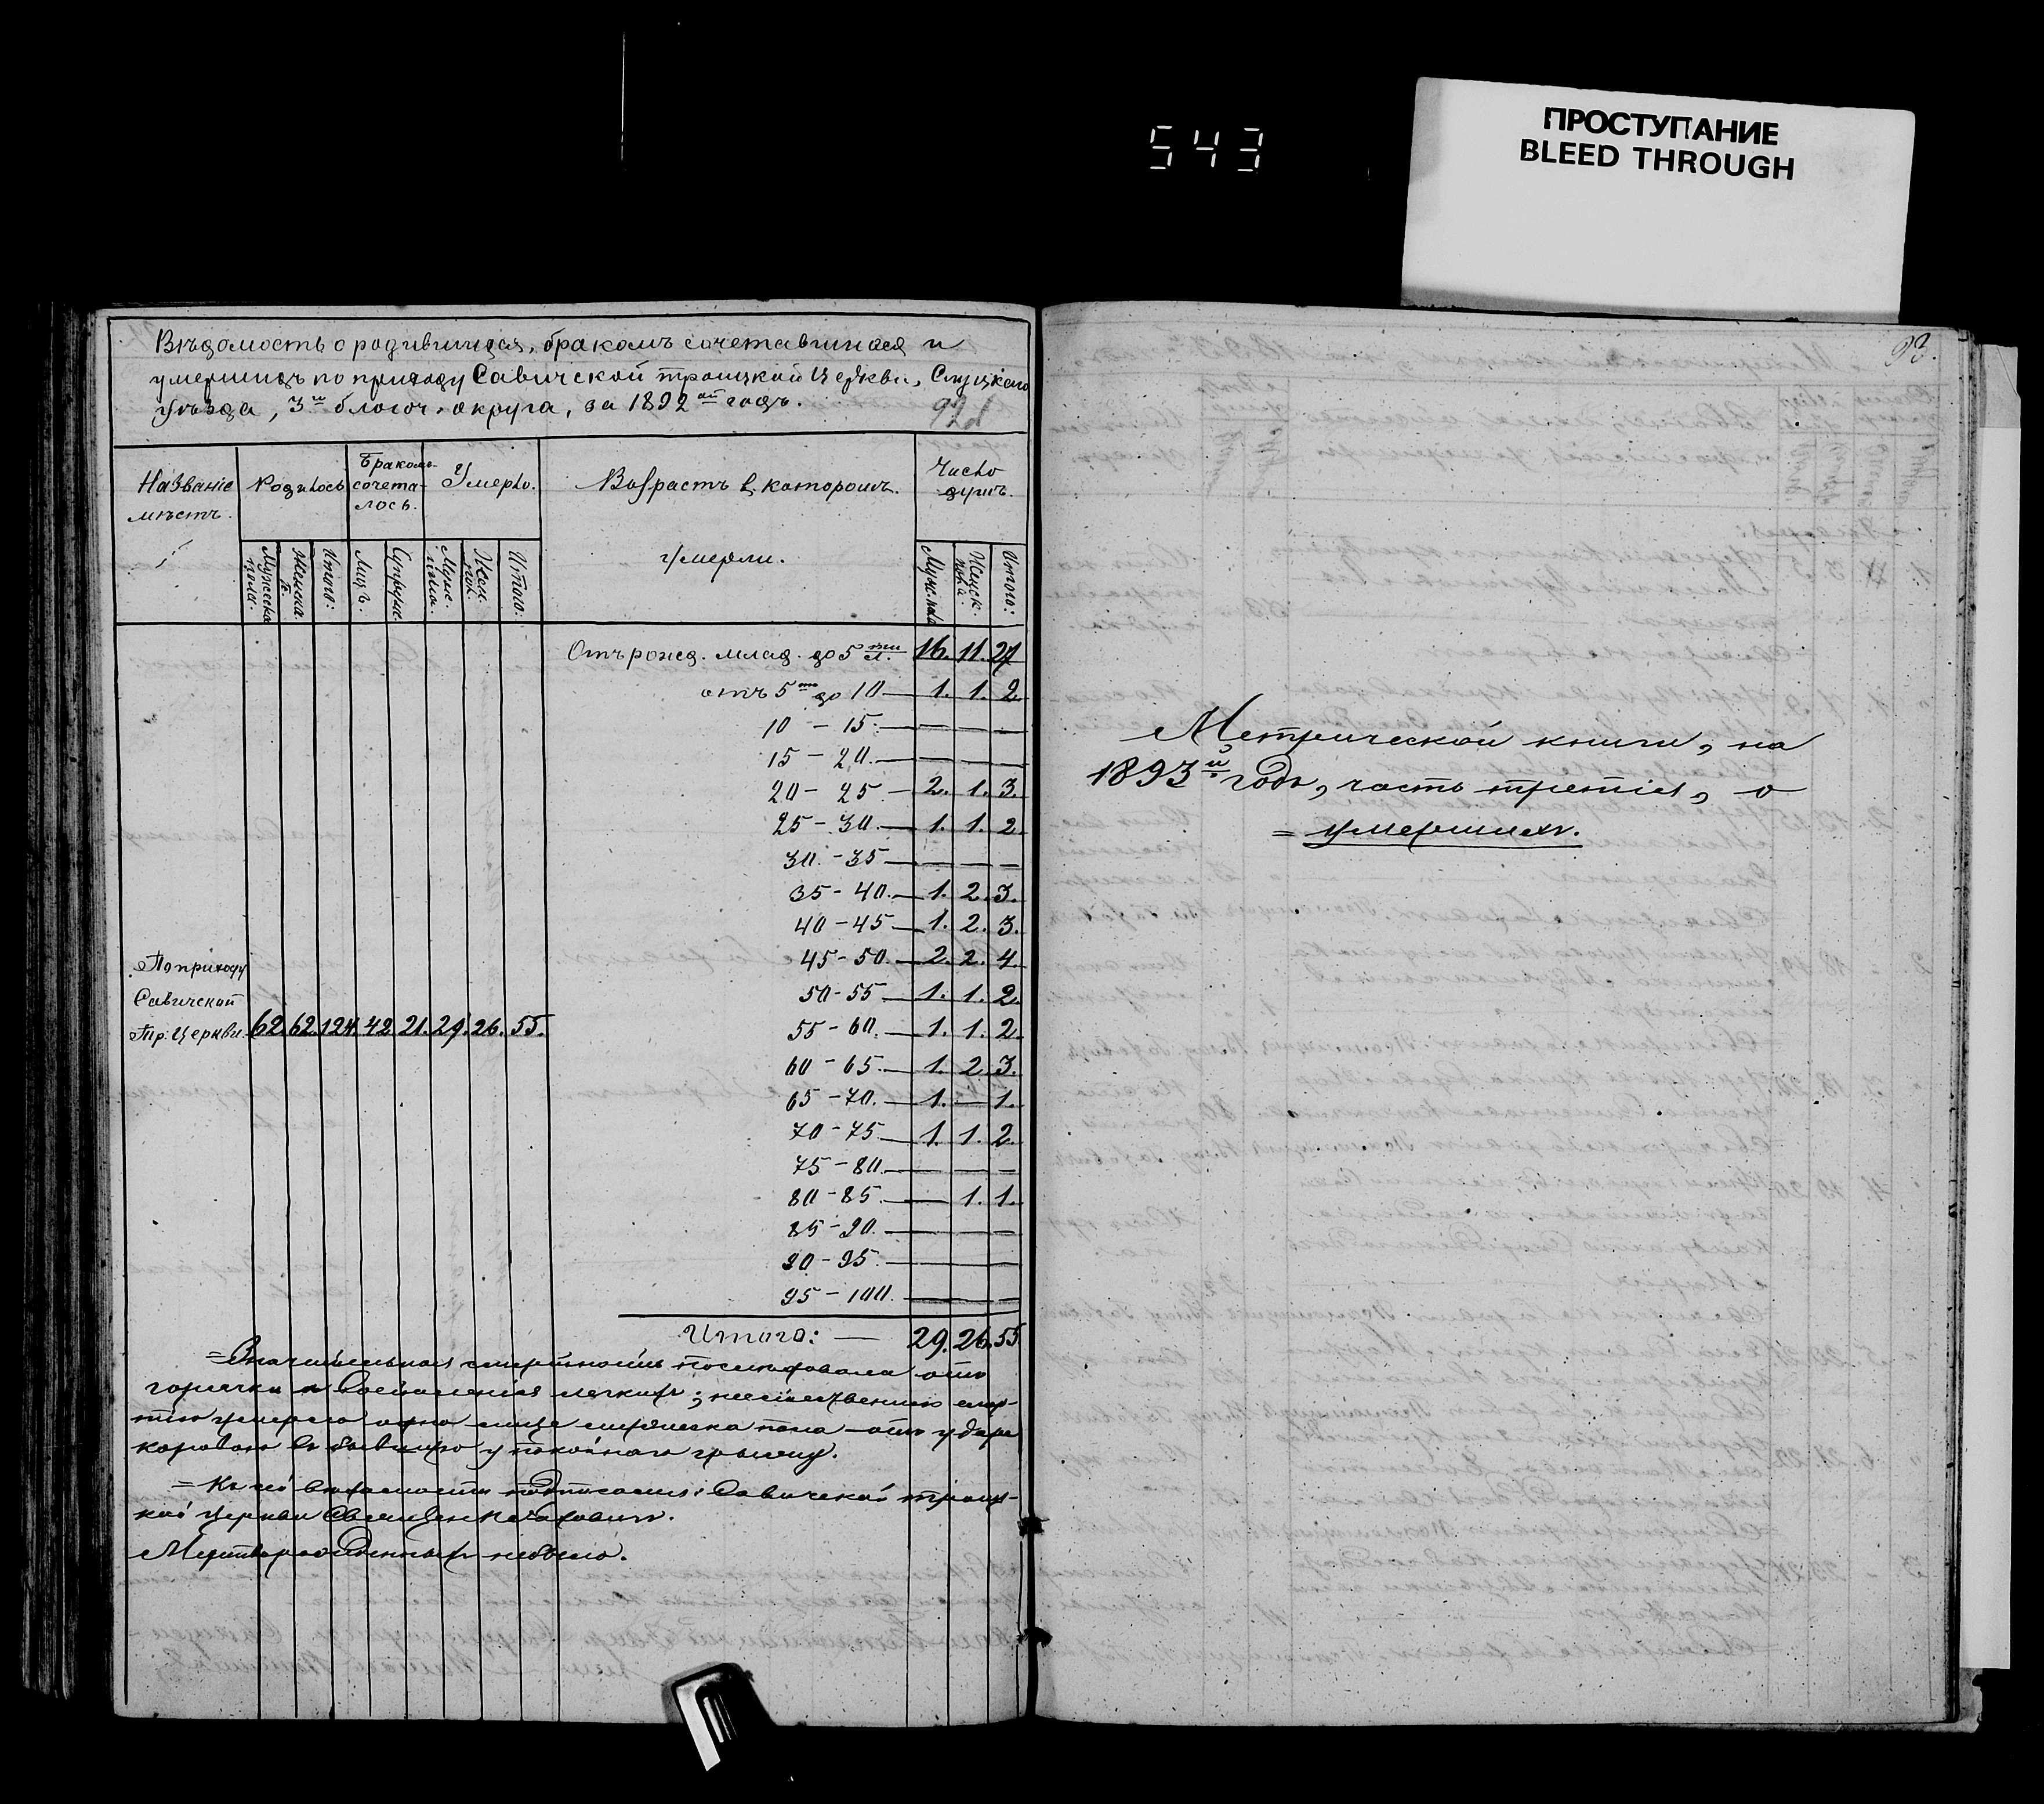 543
ПРОСТУПАНИЕ
BLEED THROUGH
Вѣдомость о родившихся, бракомъ сочетавшихся и
умершихъ по приходу Савичской троицкой Церкви, Слуцкаго
уѣзда, 3го благоч. округа, за 1892ой годъ.
92
Названіе мѣстъ.
Родилось
Бракомъ сочета-
лось.
Умерло.
Возрастъ въ которомъ
умерли.
Число
душъ.
Мужеска пола.
Женска. п.
Итого:
Лицъ.
Супруж.
Муж. пола.
Жен. пол.
Итого:
Муж. пола
Женск. пола.
Итого:
Отъ рожд. млад. до 5ти л. 16. 11. 27
отъ 5ти до 10 — 1. 1. 2.
10 - 15. — — —
15 - 20. — — —
20 - 25 - 2. 1. 3.
25 - 30. — 1. 1. 2.
30. - 35 — — —
35 - 40. — 1. 2. 3.
40 - 45 — 1. 2. 3.
45 - 50. — 2. 2. 4.
50 - 55 — 1. 1. 2.
55 - 60. — 1. 1. 2.
60 - 65. — 1. 2. 3.
65 - 70. — 1. — 1.
70 - 75 — 1. 1. 2.
75 - 80. — — —
80 - 85. — — 1. 1.
85 - 90. — — —
90 - 95. — — —
95 - 100. — — —
По приходу
Савичской
Тр. Церкви. 62. 62. 124. 42. 21. 29. 26. 55.
Итого: — 29. 26. 55
= Значительная смертность послѣдовала отъ
горячки и воспаленія легкихъ; неестественно смер-
тію умерло одно лице мужеска пола — отъ удара
коровою въ бывшую у покойнаго грыжу.
= Къ сей вѣдомости подписался: Савичской троиц-
кой церкви Священникъ
Мертворожденныхъ небыло.
93.
Метрической книги, на
1893й годъ, часть третія, о
= умершихъ.